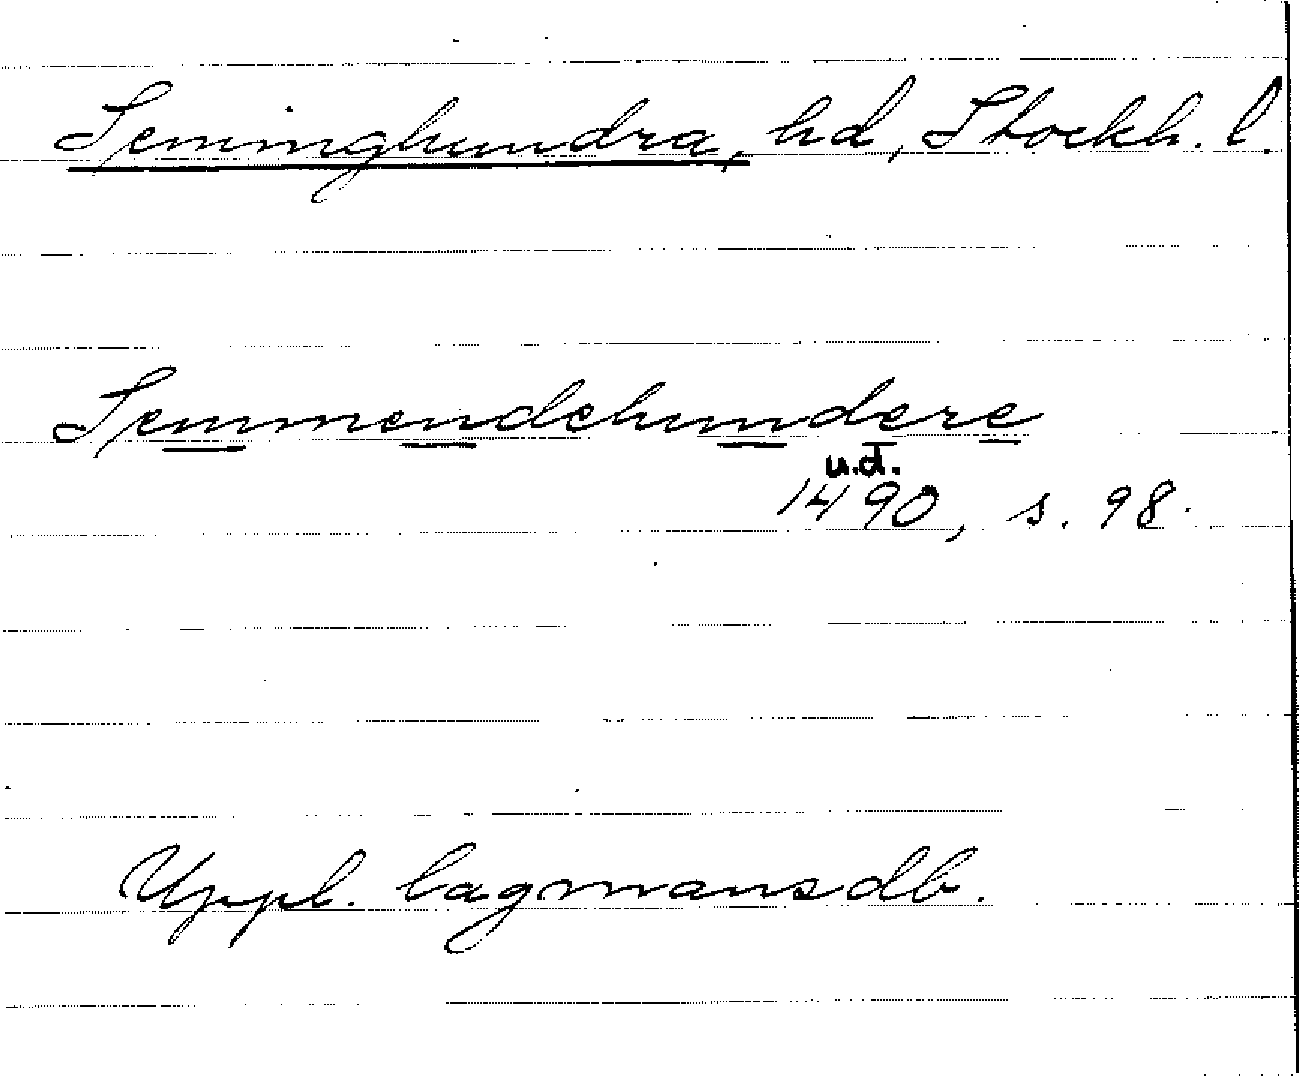 Seminghundra, hd, Stockh. l.
Semmendehundere
u.d.
1490, s. 98.
Uppl. lagmansdb.